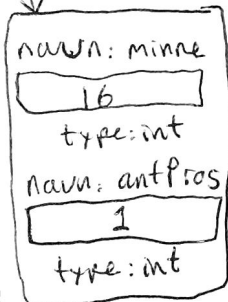 navn: minne
16
type: int
navn: antPros
1
type: int